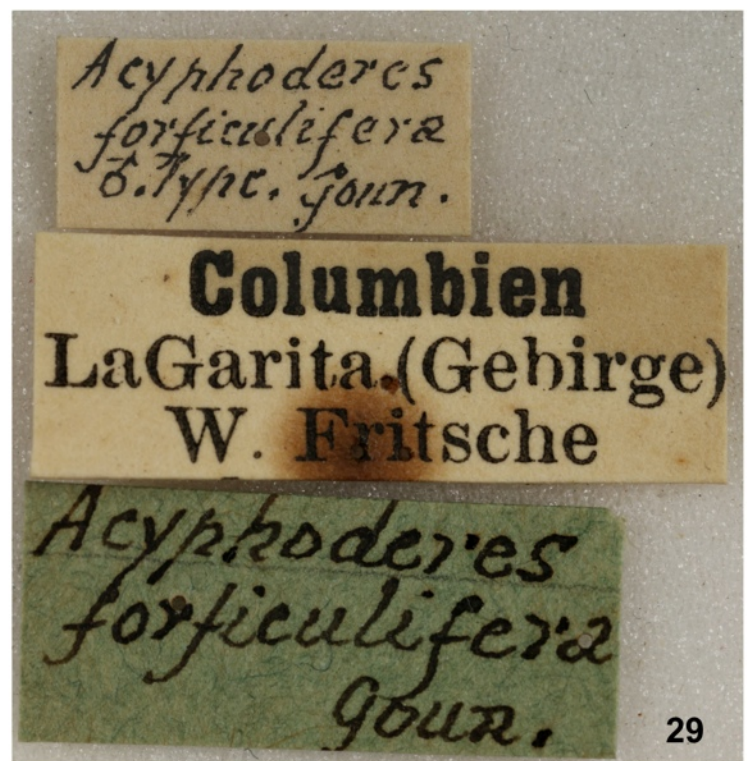 Acyphoderes
forficulifera
♂.Type. Goun.
Columbien
LaGarita.(Gebirge)
W. Fritsche
Acyphoderes
forficulifera
Goun.
29